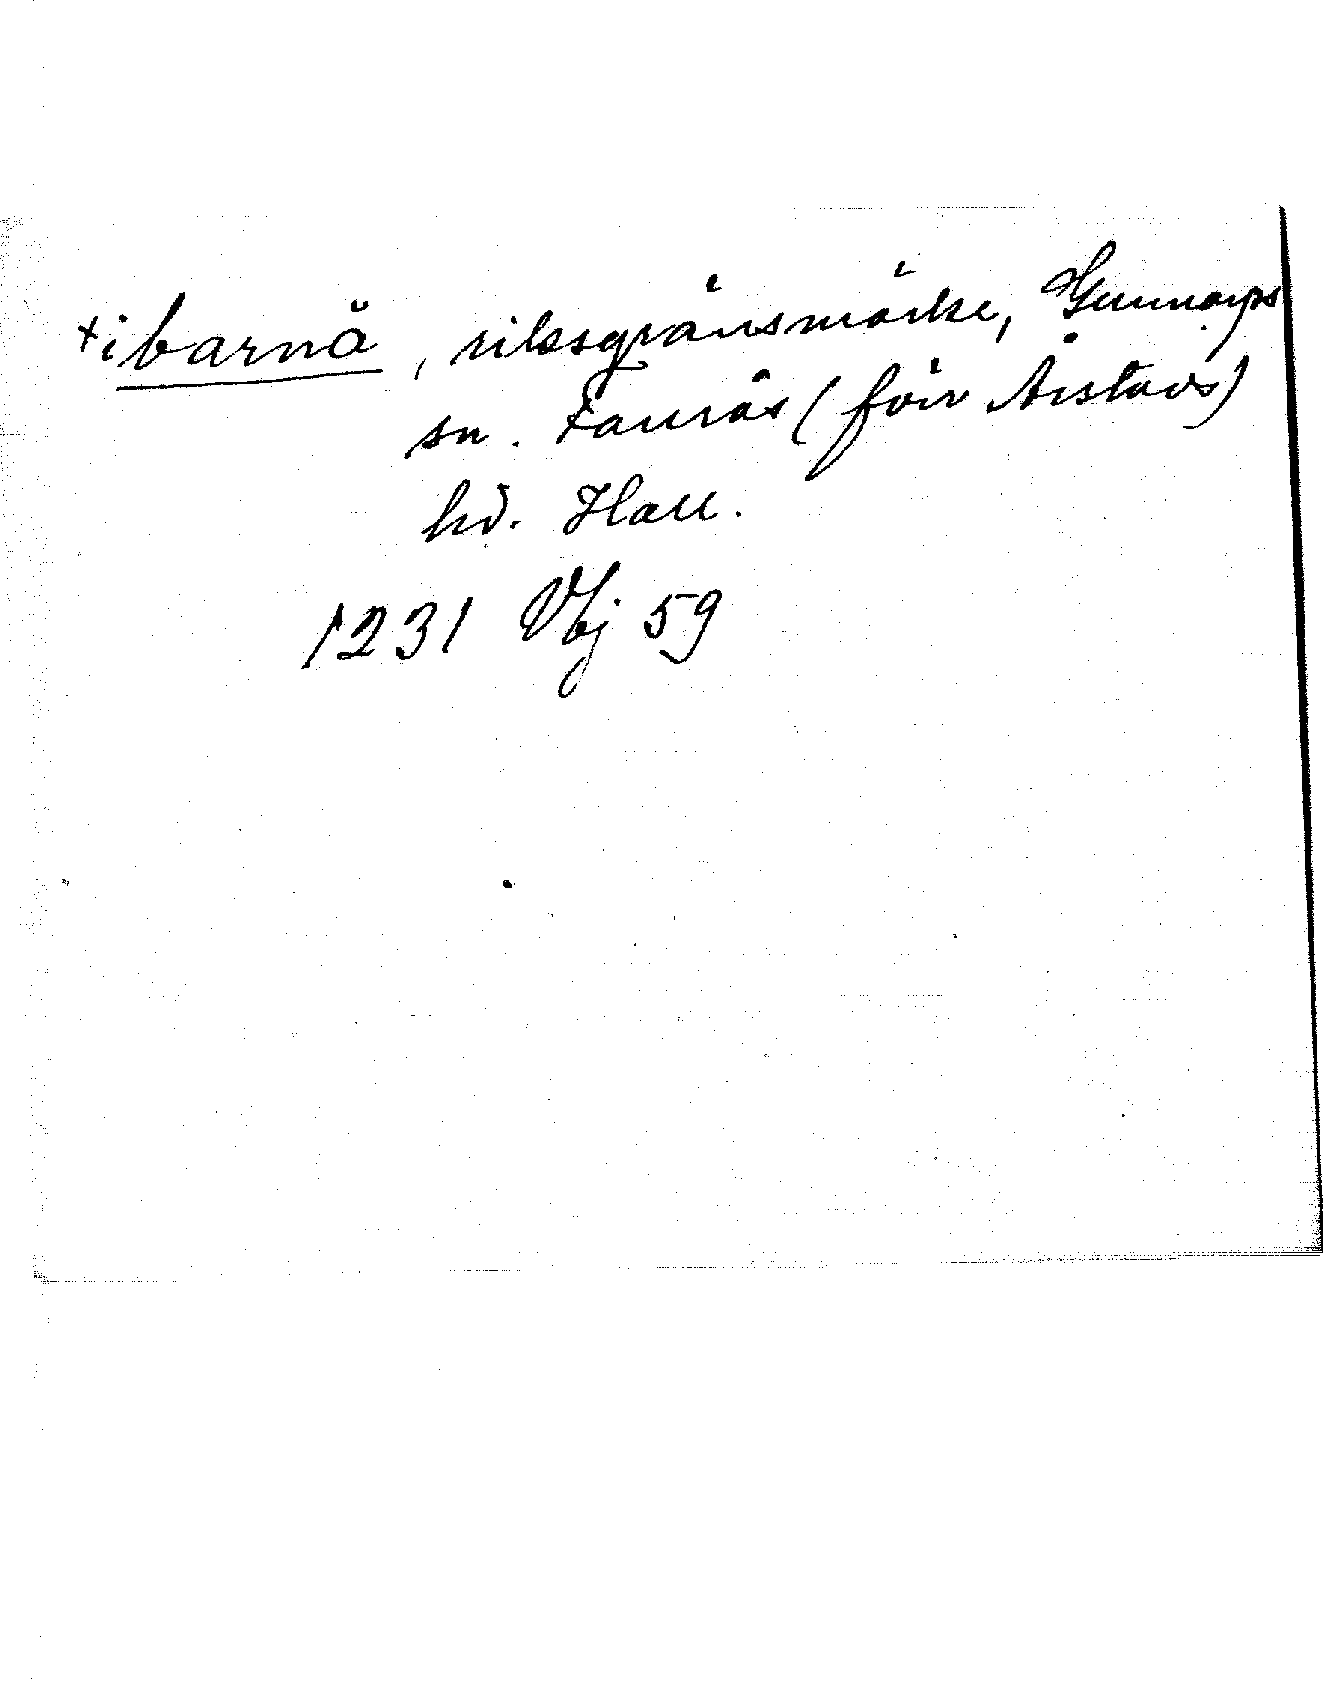 +ibarnå, riksgränsmärke, Gunnarps
sn. Faurås (förr Årstads)
hd. Hall.
1231 Vbj 59